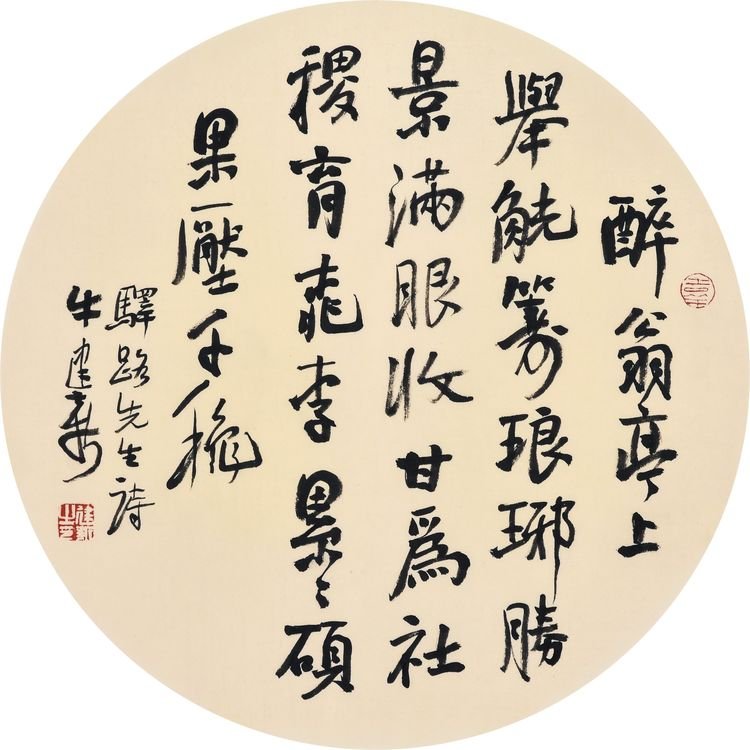 醉翁亭上
舉觥籌琅琊勝
景滿眼收甘爲社
稷育桃李累〻碩
果壓千秋
驛路先生詩
牛建